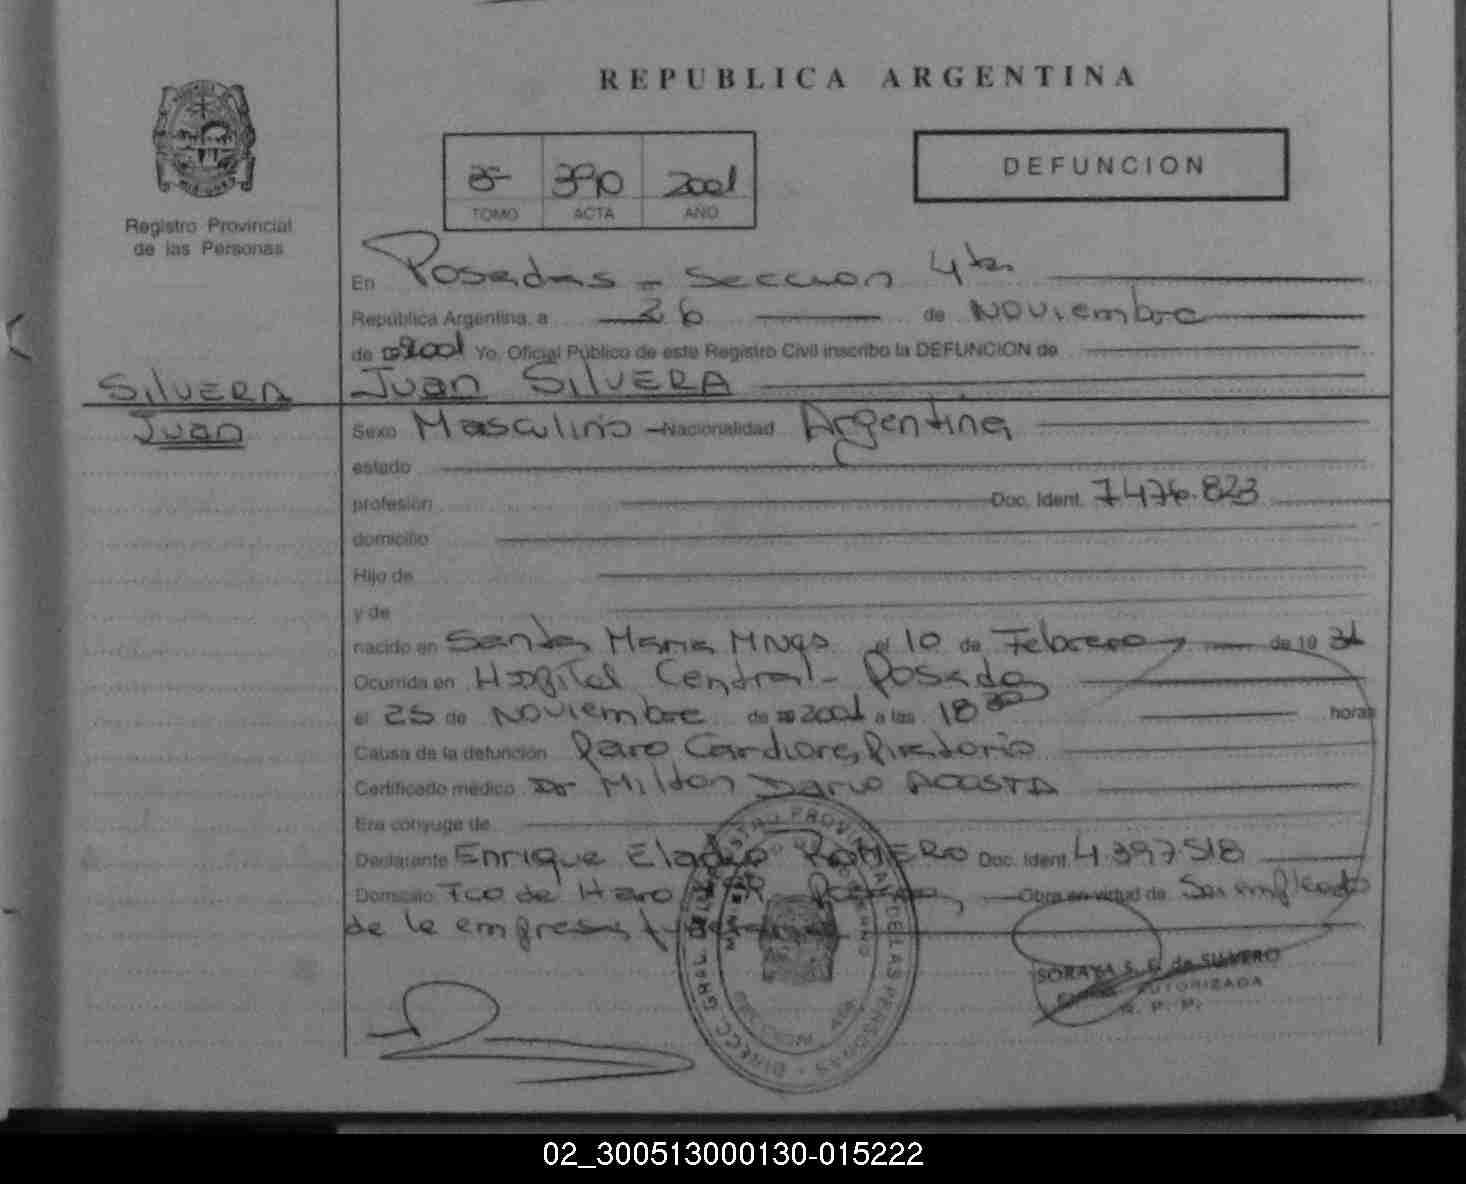 REPUBLICA ARGENTINA
390 2001
TOMO ACTA AÑO
DEFUNCION
Registro Provincial
de las Personas
En Posadas - Sección 4ta
República Argentina, a 26 de Noviembre
de 2001 Yo, Oficial Público de este Registro Civil inscribo la DEFUNCION de
SilVERA
Juan
Juan SilVERA
Sexo Masculino Nacionalidad Argentina
estado
profesión Doc. Ident. 7476.823
domicilio
Hijo de
y de
nacido en Santa Maria Mnes el 10 de Febrero de 19 31
Ocurrida en Hospital Central - Posadas
el 25 de Noviembre de 2001 a las 18 30 horas
Causa de la defunción Paro Cardiorespiratorio
Certificado médico Dr Milton Dario ACOSTA
Era cónyuge de
Declarante Enrique Eladio ROMERO Doc. Ident. 4.397518
Domicilio Fco de Haro Posadas Obra en virtud de Ser empleado
de la empresa
SORAYA S. E. de SILVERO
AUTORIZADA
R. P. P.
02_300513000130-015222